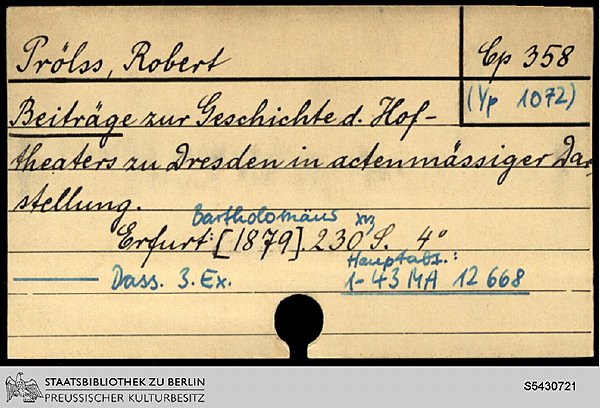 Prölss, Robert
Cp 358
(Yp 1072)
Beiträge zur Geschichte d. Hof-
theaters zu Dresden in actenmässiger Dar
stellung.
Bartholomäus XVI
Erfurt: [1879]. 230 S. 4°
Hauptabt.:
Dass. 3. Ex. 1-43 MA 12 668
STAATSBIBLIOTHEK ZU BERLIN
PREUSSISCHER KULTURBESITZ
S5430721